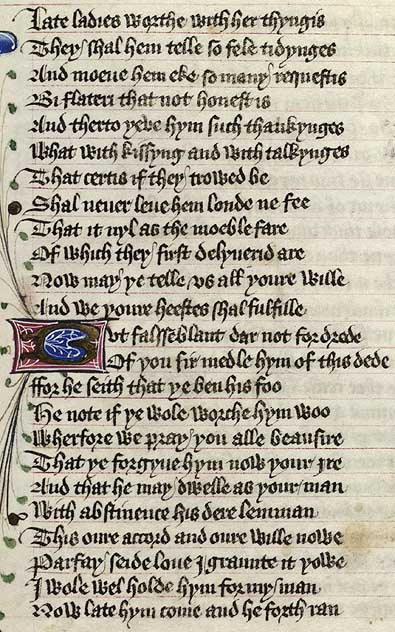 Late ladies worthe with her thyngis
They shal hem telle so fele tidynges
And moeue hem eke so many requestis
Bi flateri that not honest is
And therto yeve hym such thankynges
What with kissyng and with talkynges
That certis if they trowed be
Shal neuer leue hem londe ne fee
That it nyl as the moeble fare
Of which they first delyuerid are
Now may ye telle vs all youre wille
And we youre heestes shal fulfille
But falssemblant dar not for drede
Of you sir medle hym of this dede
ffor he seith that ye ben his foo
He note if ye wole worche hym woo
Wherfore we pray you alle beausire
That ye forgyue hym now your Ire
And that he may dwelle as your man
With abstinence his dere lemman
This oure accord and oure wille nowe
Parfay seide loue I graunte it yowe
I wole wel holde hym for my man
Now late hym come and he forth ran